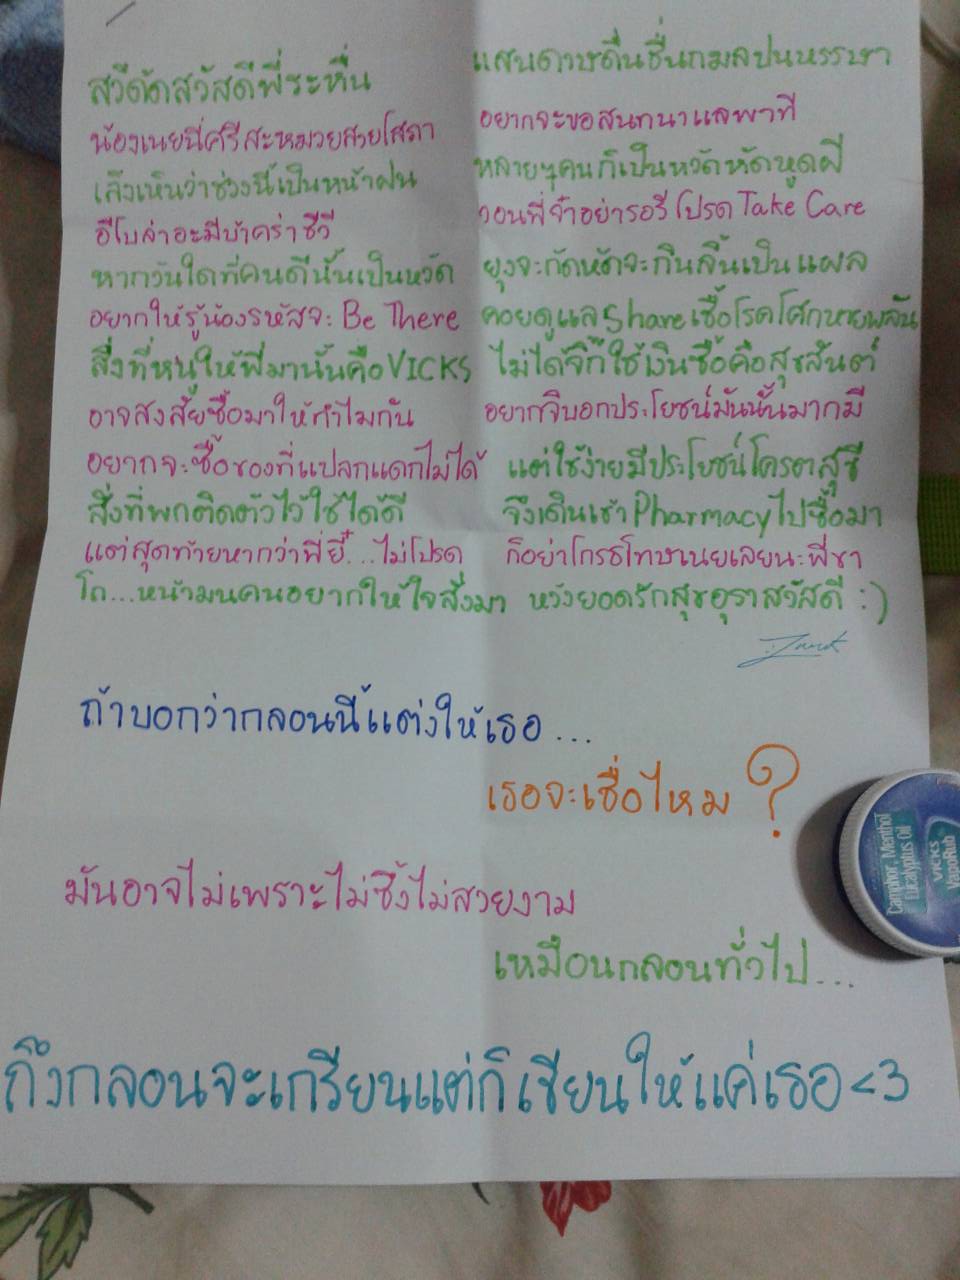 สวีดัดสวัสดีพี่ระหื่น แสนดาษดื่นชื่นกมลปนหรรษา
น้องเนยนี่ศรีสะหมวยสวยโสภา อยากจะขอสนทนาแลพาที
เล็งเห็นว่าช่วงนี้เป็นหน้าฝน หลายๆคนก็เป็นหวัดหัดหูดฝี
อีโบล่าอะมีบ้าคร่าชีวี วอนพี่จ๋าอย่ารอรีโปรด Take Care
หากวันใดที่คนดีนั้นเป็นหวัด ยุงจะกัดหัดจะกินลิ้นเป็นแผล
อยากให้รู้น้องรหัสจะ Be There คอยดูแล Share เชื้อโรคโศกหายพลัน
สิ่งที่หนูให้พี่มานั้นคือ VICKS ไม่ได้จิ๊กใช้เงินซื้อคือสุขสันต์
อาจสงสัยซื้อมาให้ทำไมกัน อยากจิบอกประโยชน์มันนั้นมากมี
อยากจะซื้อของที่แปลกแดกไม่ได้ แต่ใช้ง่ายมีประโยชน์โคตาสุขี
สิ่งที่พกติดตัวไว้ใช้ได้ดี จึงเดินเข้า Pharmacy ไปซื้อมา
แต่สุดท้ายหากว่าพี่ยี้...ไม่โปรด ก็อย่าโกรธโทษเนยเลยนะพี่ขา
โถ...หน้ามนคนอยากให้ใจสั่งมา หวังยอดรักสุขอุราสวัสดี :)
ถ้าบอกว่ากลอนนี้แต่งให้เธอ...
เธอจะเชื่อไหม ?
มันอาจไม่เพราะไม่ซึ้งไม่สวยงาม
เหมือนกลอนทั่วไป...
ถึงกลอนจะเกรียนแต่ก็เขียนให้แค่เธอ <3
Camphor, Menthol
Eucalyptus Oil
VICKS
VapoRub